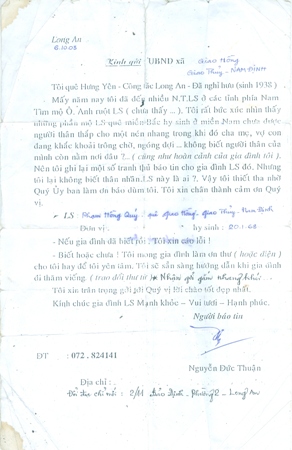 Long An
6.10.03
Kính gởi UBND xã Giao Hồng
Giao Thủy - NAM ĐỊNH
Tôi quê Hưng Yên - Công tác Long An - Đã nghỉ hưu (sinh 1938)
Mấy năm nay tôi đã đến nhiều N.T.LS ở các tỉnh phía Nam
Tìm mộ Ô. Anh một LS ( chưa thấy... ). Tôi rất bức xúc nhìn thấy
những phần mộ LS quê miền Bắc hy sinh ở miền Nam chưa được
người thân thắp cho một nén nhang trong khi đó cha mẹ, vợ con
đang khắc khoải trông chờ, ngóng đợi .. không biết người thân của
mình còn nằm nơi đâu ?... ( cũng như hoàn cảnh của gia đình tôi ).
Nên tôi ghi lại một số tranh thủ báo tin cho gia đình LS đó. Nhưng
tôi lại không biết thân nhân LS này là ai ?. Vậy tôi thiết tha nhờ
Quý Ủy ban làm ơn báo dùm tôi. Tôi xin chân thành cảm ơn Quý
vị.
LS : Phạm Hồng Quý quê Giao Hồng, Giao Thủy, Nam Định
Đơn vị : hy sinh : 20.1.68
- Nếu gia đình đã biết rồi : Tôi xin cáo lỗi !
- Biết hoặc chưa ! Tôi mong gia đình làm ơn thư ( hoặc điện )
cho tôi hay để tôi yên tâm. Tôi sẽ sẵn sàng hướng dẫn khi gia đình
đi thăm viếng. ( trao đổi thư từ )
Tôi xin trân trọng gởi tới Quý vị lời chào tốt đẹp nhất.
Kính chúc gia đình LS Mạnh khỏe – Vui tươi – Hạnh phúc.
Người báo tin
ĐT : 072. 824141
Nguyễn Đức Thuận
Địa chỉ :
2/11 Bảo Định - Phường 2 - Long An